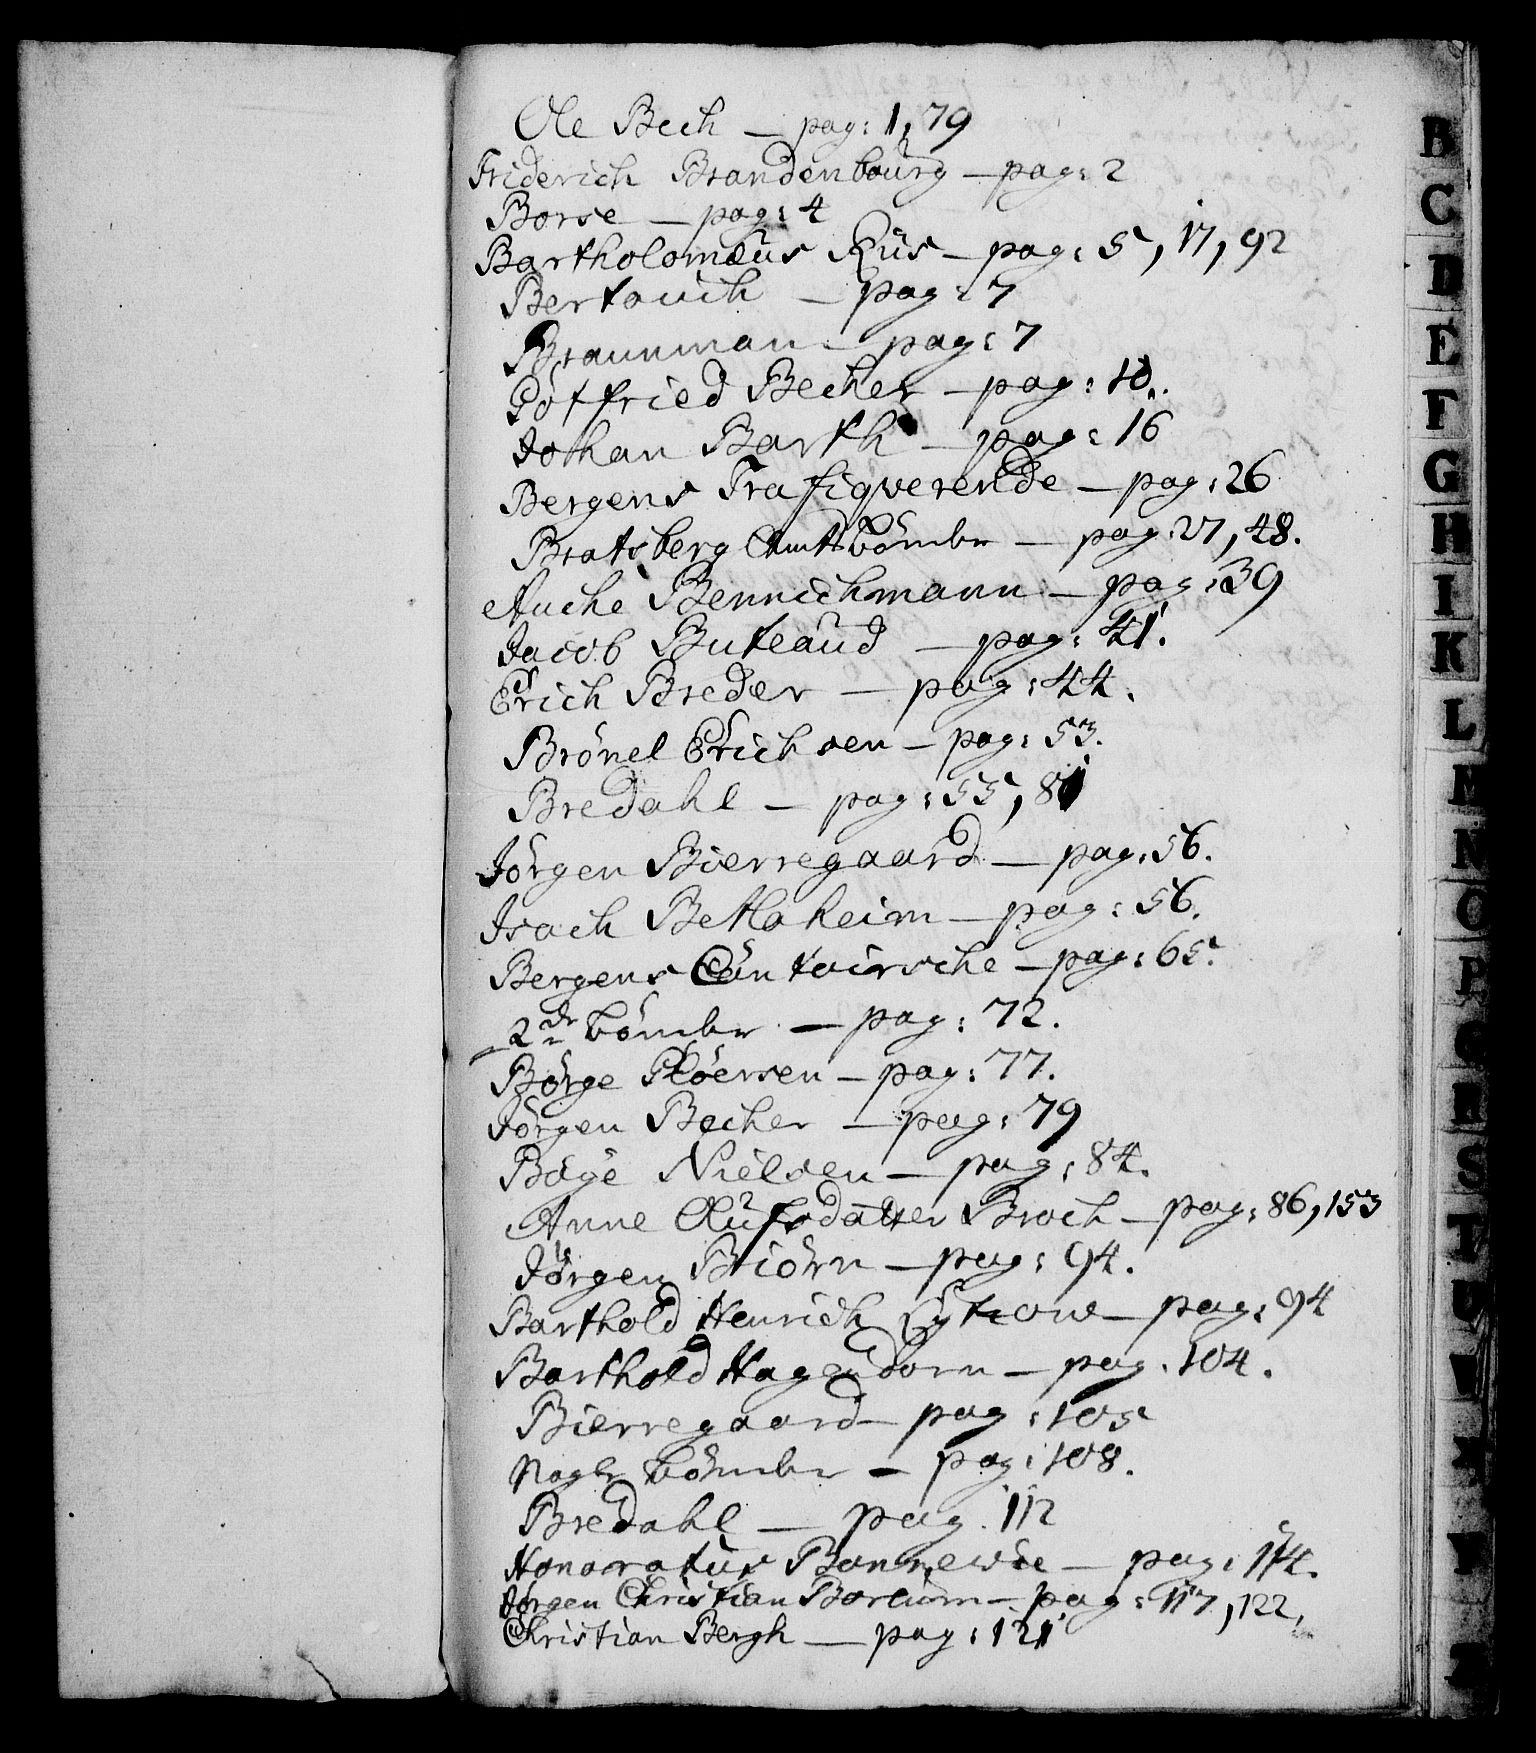 Ole Bech — pag: 1, 79
Friderich Brandenbourg — pag: 2
Borse — pag: 4
Bartholomæus Riis — pag: 5, 17, 92
Bertouch — pag: 7
Braunman — pag: 7
Gotfried Becher — pag: 10.
Johan Barth — pag: 16
Bergens Trafiqverende — pag: 26
Bratsberg Amts — pag: 27, 48.
Anche Bennichmann — pag: 39
Jacob Buteaud — pag: 41.
Erich Breder — pag: 44.
Brönel Erichsen — pag: 53.
Bredahl — pag: 55, 81
Jörgen Bierregaard — pag: 56.
Isach Bethaheim — pag: 56.
Bergens Contoirsche — pag: 65.
2de — pag: 72.
Börge — pag: 77.
Jörgen Becher — pag: 79
Böye Nielsen — pag: 84.
Anne Olufsdatter Broch — pag: 86, 153
Jörgen Biörn — pag: 94.
Barthold Henrich Lytzow — pag: 94
Barthold Hagendorn — pag. 104.
Bierregaard — pag: 105
Nogle — pag: 108.
Bredahl — pag. 112
Honoratus Bonnevie — pag: 114.
Jörgen Christian Boreum — pag: 117, 122,
Christian Bergh — pag: 121
B
C
D
E
F
G
H
I
K
L
M
N
O
P
Q
R
S
T
U
W
X
Y
Z